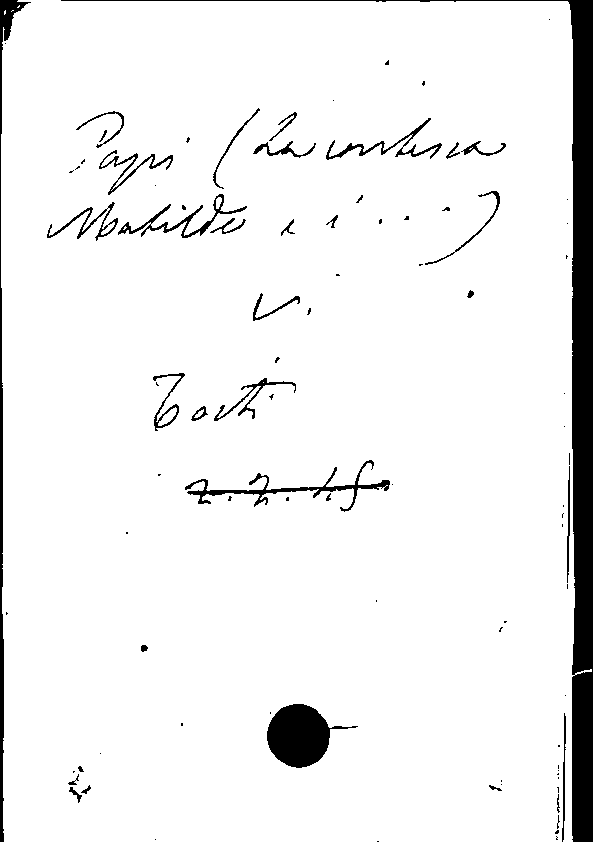 Papi (La contessa
Matilde e i ....)
v.
Tosti